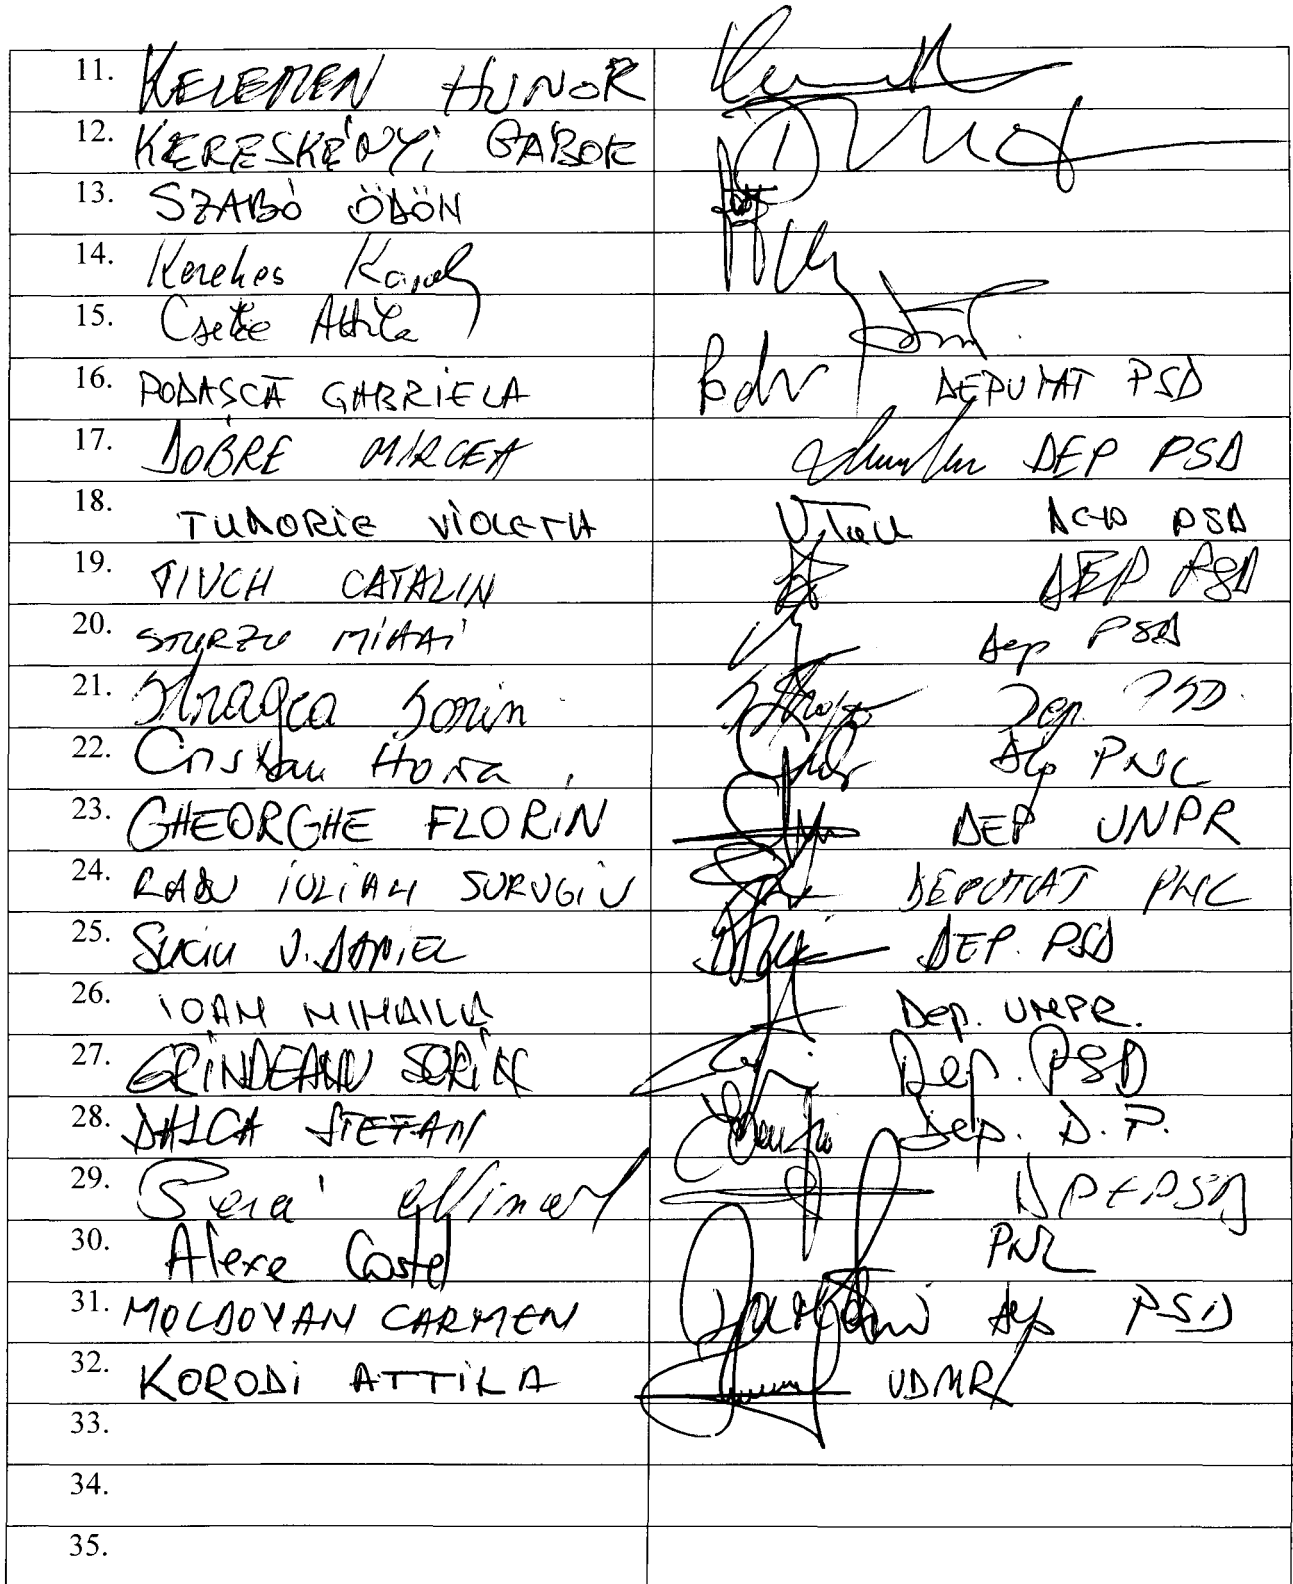 11. KELEMEN HUNOR
12. KERESKÉNYI GÁBOR
13. SZABÓ ÖDÖN
14. Kerekes Karoly
15. Cseke Attila
16. PODAȘCĂ GABRIELA DEPUTAT PSD
17. DOBRE MIRCEA DEP PSD
18. TUDORIE VIOLETA DEP PSD
19. TIVCH CATALIN DEP PSD
20. STURZU MIHAI Dep PSD
21. Stragea Sorin Dep. PSD.
22. Cristian Horia Dep PNL
23. GHEORGHE FLORIN DEP UNPR
24. RADU IULIAN SURUGIU DEPUTAT PNL
25. Suciu V. DANIEL DEP. PSD
26. IOAN MIHAILĂ Dep. UNPR.
27. GRINDEANU SORIN Dep. PSD
28. DALCA STEFAN Dep. D.P.
29.
30. Alexe Costel PNL
31. MOLDOVAN CARMEN dep PSD
32. KORODI ATTILA UDMR
33.
34.
35.